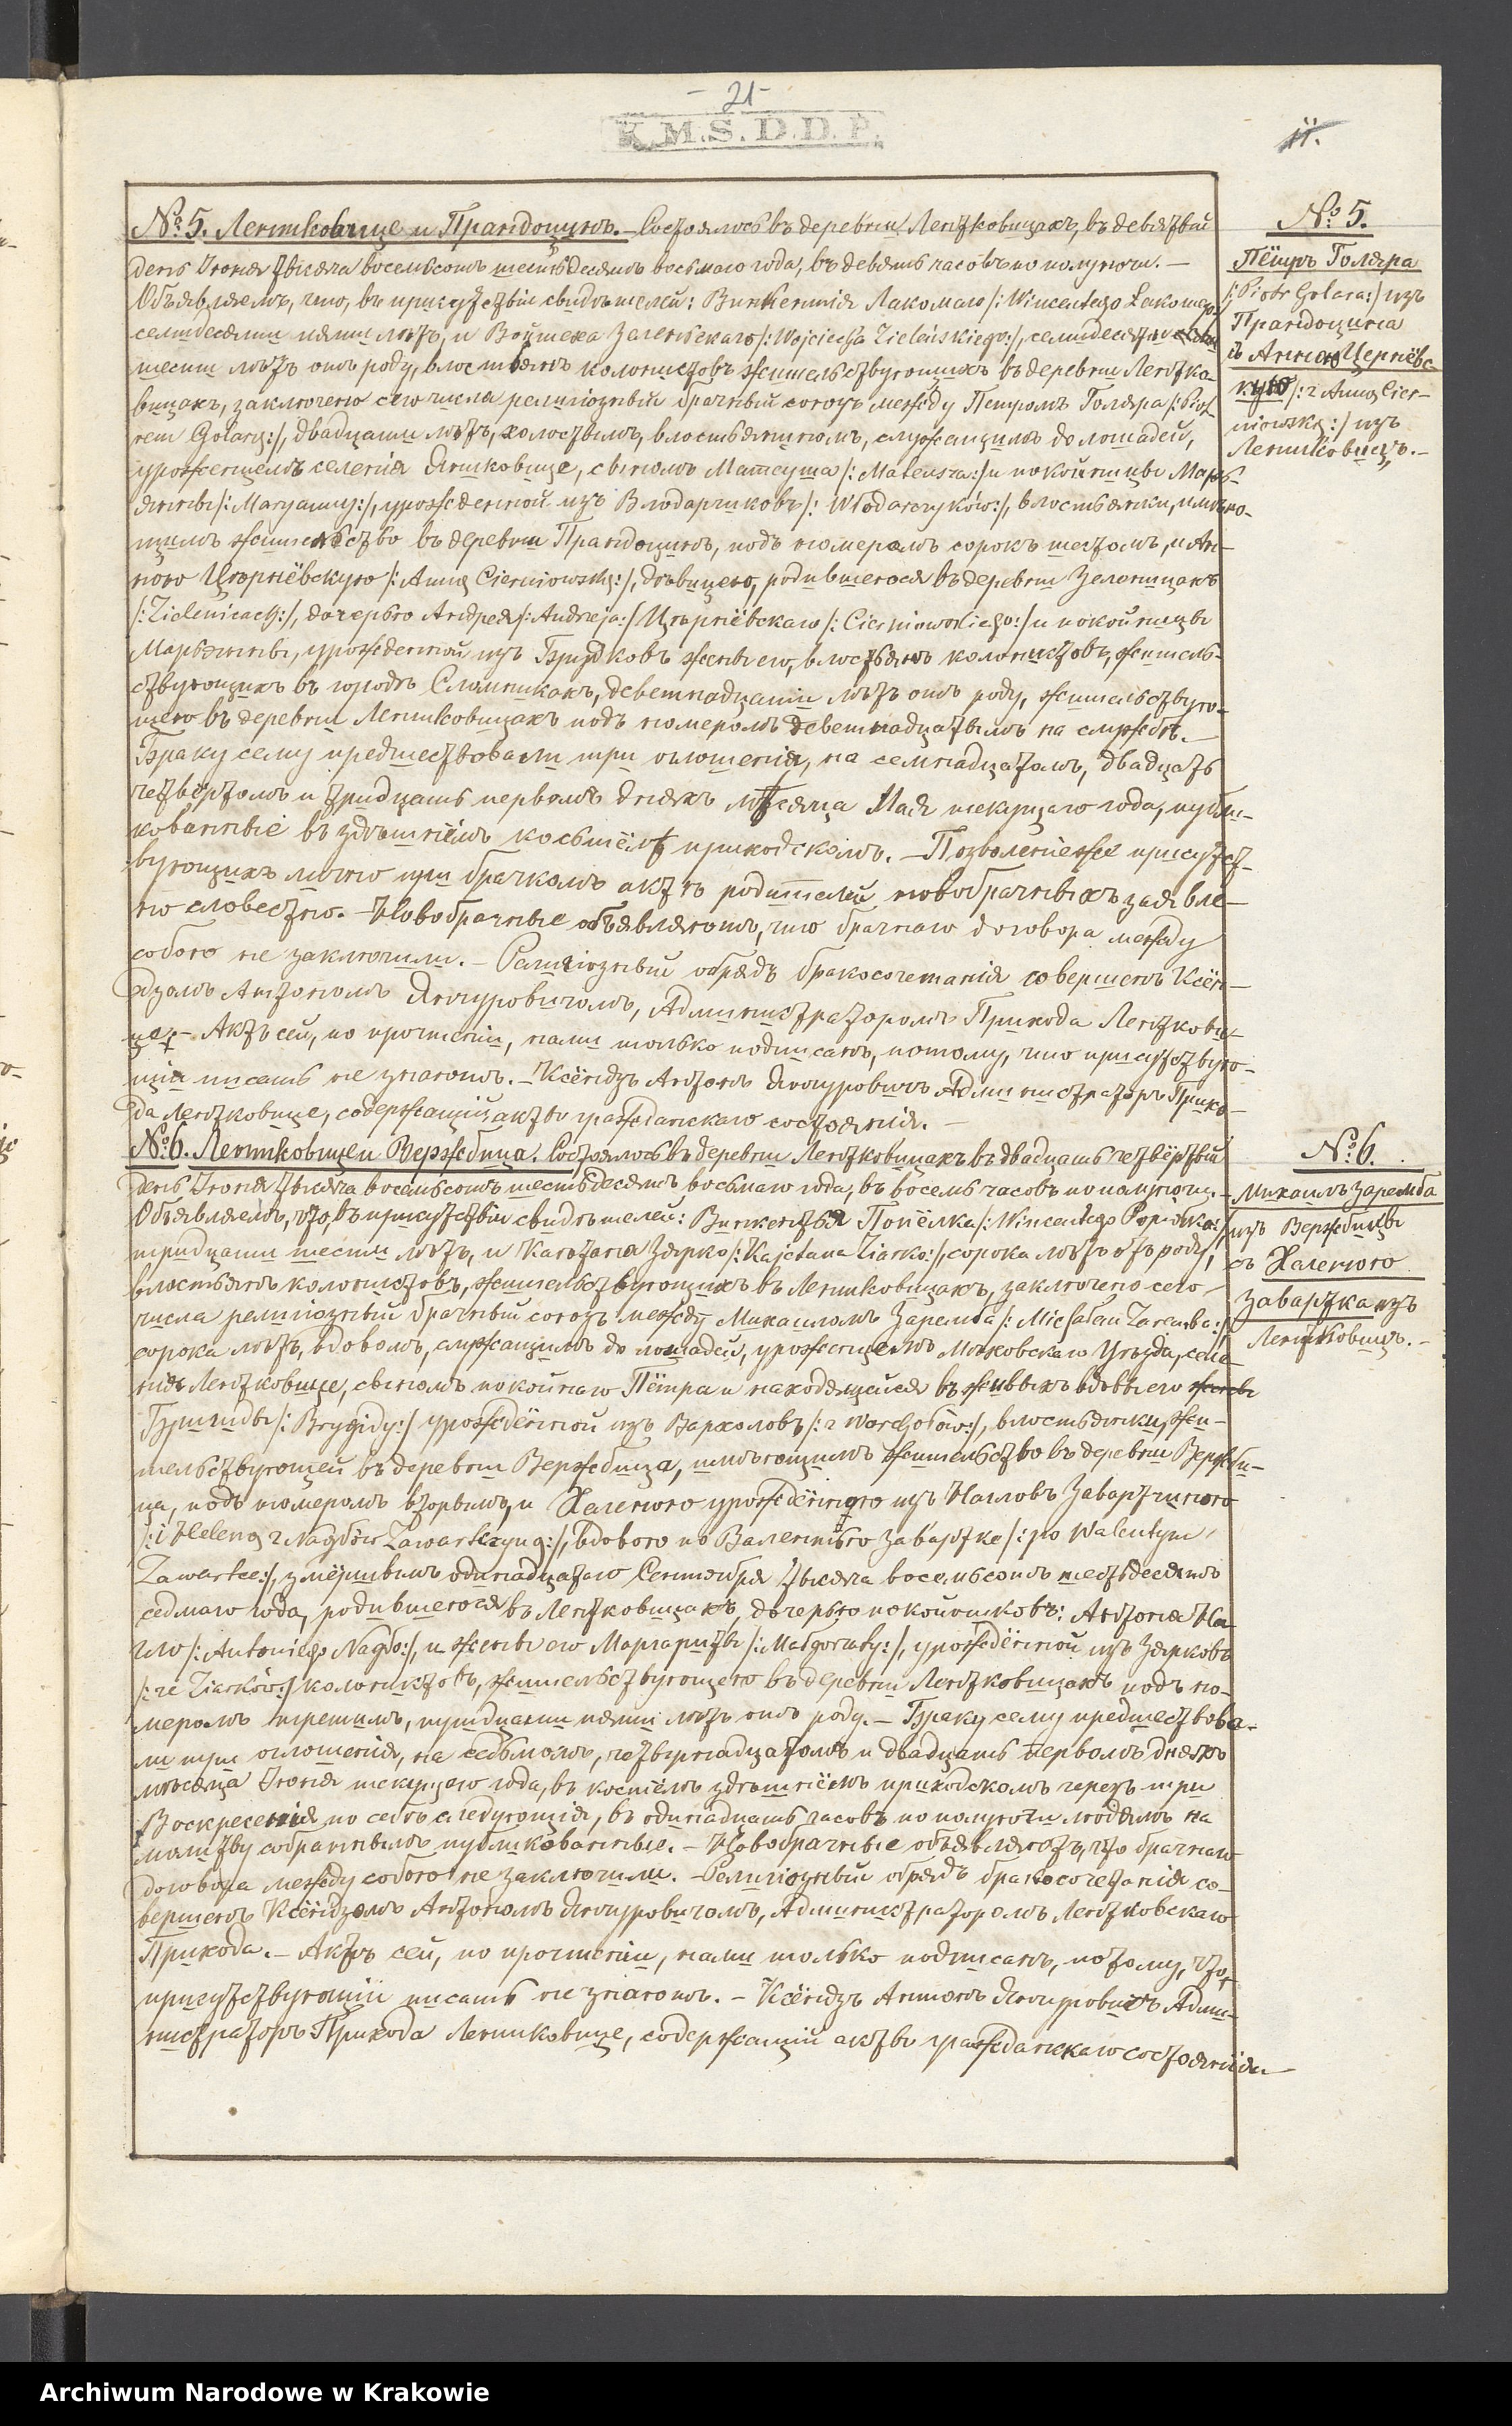 - 21 -
K.M.S.D.D.P.
11.
№ 5. Лентковице и Прандоцинъ. — Состоялось въ деревни Лентковицахъ, въ девятый
день Іюня тысяча восемьсотъ шестьдесятъ восьмаго года, въ девять часовъ по полуночи. —
Объявляемъ, что, въ присутствіи свидѣтелей: Винкентія Лакомаго /: Wincentego Łakomego :/
семидесяти пяти лѣтъ, и Войтеха Зеленьскаго /: Wojciecha Zieleńskiego :/, семидесяти
шести лѣтъ отъ роду, влостьянъ колонистовъ жительствующихъ въ деревни Лентко-
вицахъ, заключено сего числа религіозный брачный союзъ между Петромъ Голяра /: Piot-
rem Golarą :/, двадцати лѣтъ, холостымъ, влостьяниномъ, служащимъ до лошадей,
уроженцемъ селенія Яниковице, сыномъ Матеуша /: Mateusza :/ и покойницы Марь-
янны /: Maryanny :/, урожденной изъ Влодарчиковъ /: Włodarczyków :/, влостьянки, имѣю-
щимъ жительство въ деревни Прандоцинъ, подъ номеромъ сорокъ шестомъ, и Ан-
ною Цѣрнёвскую /: Anną Cierniowską :/, дѣвицею, родившеюся въ деревни Зеленицахъ
/: Zielenicach :/, дочерью Андрея /: Andrzeja :/ Цѣрнёвскаго /: Cierniowskiego :/ и покойницы
Марьянны, урожденной изъ Брудковъ жены его, влостьянъ колонистовъ, житель-
ствующихъ въ городѣ Сломникахъ, деветнадцати лѣтъ отъ роду, жительствую-
щею въ деревни Лентковицахъ подъ номеромъ деветнадцатымъ на службѣ. —
Браку сему предшествовали три оглошенія, на семнадцатомъ, двадцать
четвёртомъ и тридцать первомъ дняхъ мѣсяца Мая текущаго года, публи-
кованные въ здѣшнёмъ косьтёлѣ приходскомъ. — Позволеніе же присутст-
вующихъ лично при брачномъ актѣ родителей новобрачныхъ заявле-
но словестно. — Новобрачные объявляютъ, что брачнаго договора между
собою не заключили. — Религіозный обрядъ бракосочетанія совершенъ Ксён-
дзомъ Антономъ Янчуровичомъ, Администраторомъ Прихода Ленткови-
це. — Актъ сей, по прочтеніи, нами только подписанъ, потому, что присутствую-
щіи писать не знаютъ. — Ксёндзъ Антонъ Янчуровичъ Администраторъ Прихо-
да Лентковице, содержащій акты гражданскаго состоянія. —
№ 6. Лентковице и Вержбица. Состоялось въ деревни Лентковицахъ въ двадцать четвёртый
день Іюня тысяча восемьсотъ шестьдесятъ восьмаго года, въ восемь часовъ по полуночи. —
Объявляемъ, что, въ присутствіи свидѣтелей: Винкентья Попёлка /: Wincentego Popiołka :/
тридцати шести лѣтъ, и Каетана Зярко /: Kajetana Ziarko :/, сорока лѣтъ отъ роду,
влостьянъ колонистовъ, жительствующихъ въ Лентковицахъ, заключено сего
числа религіозный брачный союзъ между Михаиломъ Заремба /: Michałem Zaremba :/
сорока лѣтъ, вдовомъ, служащимъ до лошадей, уроженцемъ Мѣховскаго Уѣзда, селе-
нія Лентковице, сыномъ покойнаго Пётра и находящейся въ живыхъ вдовы его жены
Бригиды /: Brygidy :/ урождённой изъ Вархоловъ /: z Warchołów :/, влостьянки, жи-
тельствующей въ деревни Вержбица, имѣющимъ жительство въ деревни Вержби-
ца, подъ номеромъ вторымъ, и Хеленою урождённою изъ Нагловъ Завартчиною
/: i Heleną z Nagłów Zawartczyną :/, вдовою по Валентымъ Завартке /: po Walentym
Zawartce :/, умёршимъ одинадцатаго Сентября тысяча восемьсотъ шестьдесятъ
седмаго года, родившеюся въ Лентковицахъ, дочерью покойниковъ: Антонія На-
гло /: Antoniego Nagło :/, и жены его Маргариты /: Małgorzaty :/, урождённой изъ Зярковъ
/: ze Ziarków :/ колонистовъ, жительствующею въ деревни Лентковицахъ подъ но-
меромъ третимъ, тридцати пяти лѣтъ отъ роду. — Браку сему предшествова-
ли три оглошенія, на седьмомъ, четырнадцатомъ и двадцать первомъ дняхъ
мѣсяца Іюня текущаго года, въ костёлѣ здѣшнёмъ приходскомъ черезъ три
Воскресенія по себѣ следующія, въ одинадцать часовъ по полуночи людямъ на
молитву собраннымъ публикованные. — Новобрачные объявляютъ, что брачнаго
договора между собою не заключили. — Религіозный обрядъ бракосочетанія со-
вершенъ Ксёндзомъ Антономъ Янчуровичомъ, Администраторомъ Лентковскаго
Прихода. — Актъ сей, по прочтеніи, нами только подписанъ, потому, что,
присутствующіи писать не знаютъ. — Ксёндзъ Антонъ Янчуровичъ Адми-
нистраторъ Прихода Лентковице, содержащій акты гражданскаго состоянія
№ 5.
Пётръ Голяра
/: Piotr Golara :/ изъ
Прандоцина
съ Анною Цернёвс-
кую /: z Anną Cier-
niowską :/ изъ
Лентковицъ. —
№ 6.
Михаилъ Заремба
изъ Вержбицы
съ Хеленою
Завартка изъ
Лентковицъ. —
Archiwum Narodowe w Krakowie